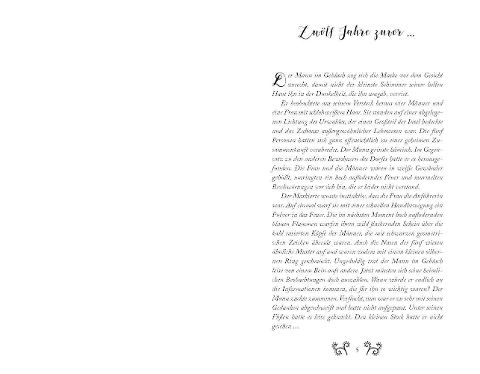 Zwölf Jahre zuvor ...
Der Mann im Gebüsch zog sich die Maske vor dem Gesicht
zurecht, damit nicht der kleinste Schimmer seiner hellen
Haut ihn in der Dunkelheit, die ihn umgab, verriet.
Er beobachtete aus seinem Versteck heraus vier Männer und
eine Frau mit schlohweißem Haar. Sie standen auf einer abgelege-
nen Lichtung des Urwaldes, der einen Großteil der Insel bedeckte
und das Zuhause außergewöhnlicher Lebewesen war. Die fünf
Personen hatten sich ganz offensichtlich zu einer geheimen Zu-
sammenkunft verabredet. Der Mann grinste hämisch. Im Gegen-
satz zu den anderen Bewohnern des Dorfes hatte er es herausge-
funden. Die Frau und die Männer waren in weiße Gewänder
gehüllt, umringten ein hoch aufloderndes Feuer und murmelten
Beschwörungen vor sich hin, die er leider nicht verstand.
Der Maskierte wusste instinktiv, dass die Frau die Anführerin
war. Auf einmal warf sie mit einer schnellen Handbewegung ein
Pulver in das Feuer. Die im nächsten Moment hoch auflodernden
blauen Flammen warfen ihren wild flackernden Schein über die
kahl rasierten Köpfe der Männer, die mit schwarzen geometri-
schen Zeichen übersät waren. Auch die Nasen der fünf wiesen
ähnliche Muster auf und waren zudem mit einem kleinen silber-
nen Ring geschmückt. Ungeduldig trat der Mann im Gebüsch
leise von einem Bein aufs andere. Jetzt mussten sich seine heimli-
chen Beobachtungen doch auszahlen. Wann würde er endlich an
die Informationen kommen, die für ihn so wichtig waren? Der
Mann zuckte zusammen. Verflucht, nun war er zu sehr mit seinen
Gedanken abgeschweift und hatte nicht aufgepasst. Unter seinen
Füßen hatte es leise geknackt. Den kleinen Stock hatte er nicht
gesehen ...
5